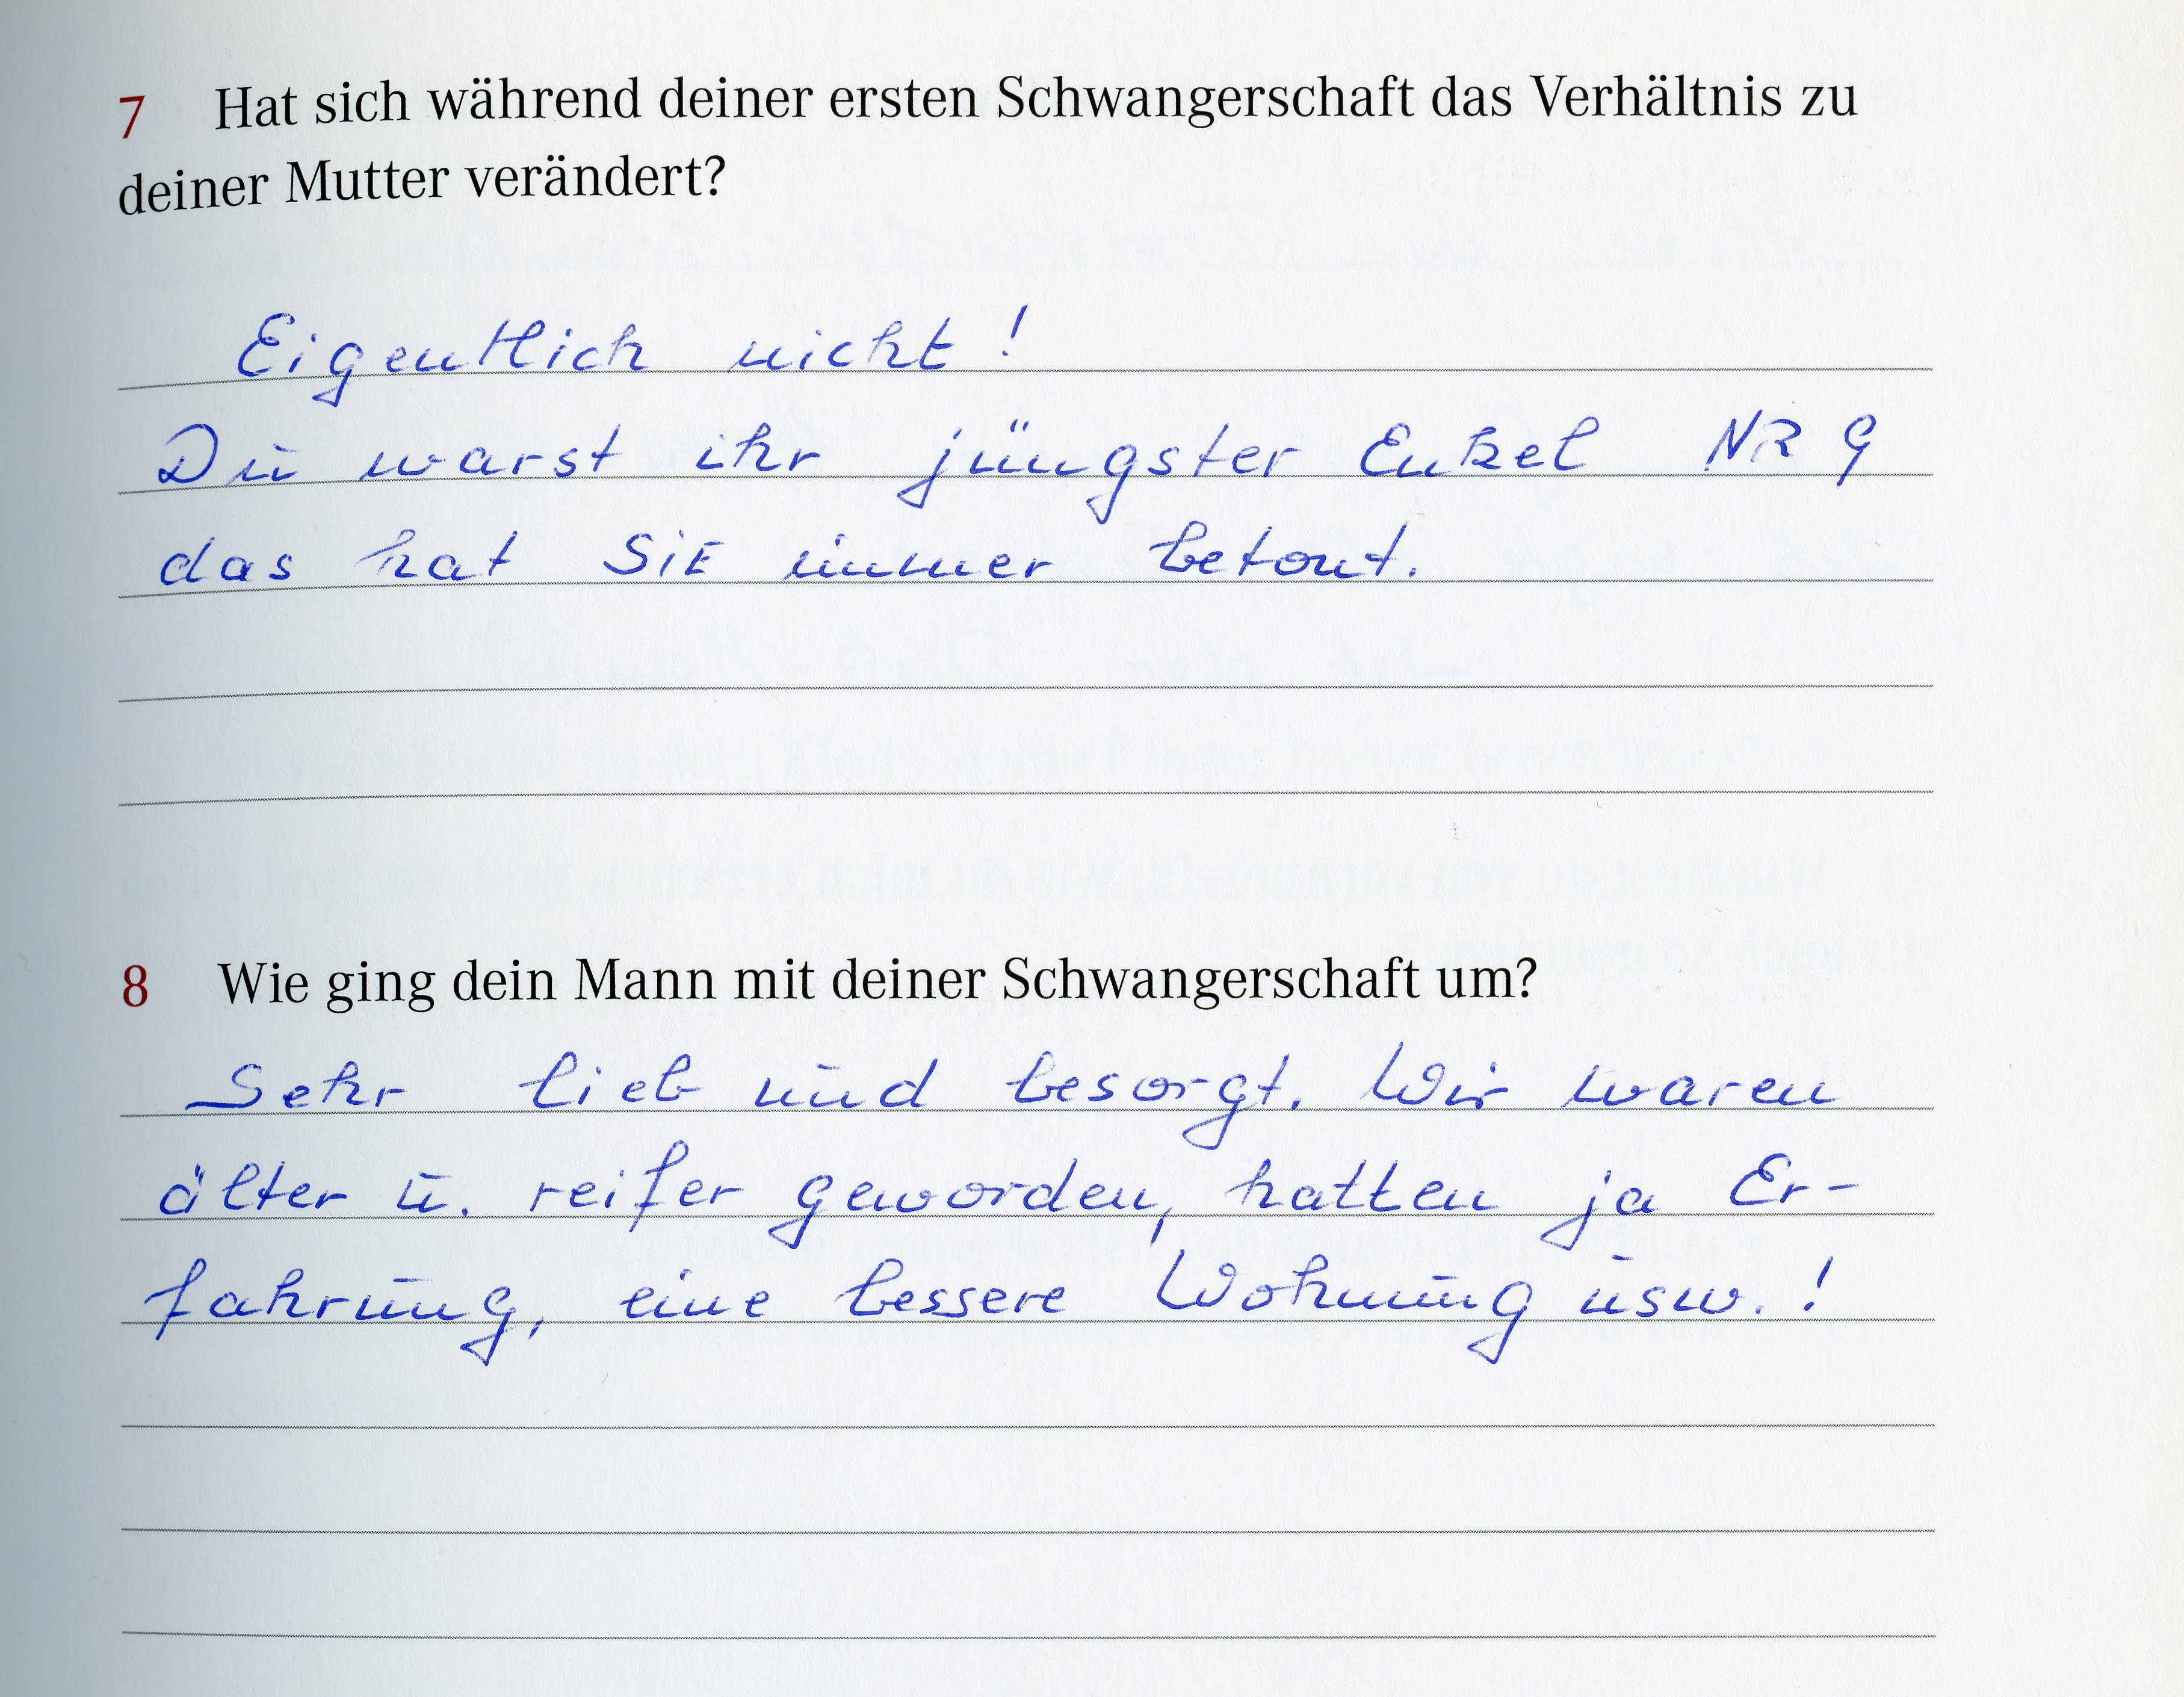 7 Hat sich während deiner ersten Schwangerschaft das Verhältnis zu
deiner Mutter verändert?
Eigentlich nicht!
Du warst ihr jüngster Enkel NR 9
das hat SiE immer betont.
8 Wie ging dein Mann mit deiner Schwangerschaft um?
Sehr lieb und besorgt. Wir waren
älter u. reifer geworden, hatten ja Er-
fahrung, eine bessere Wohnung usw.!